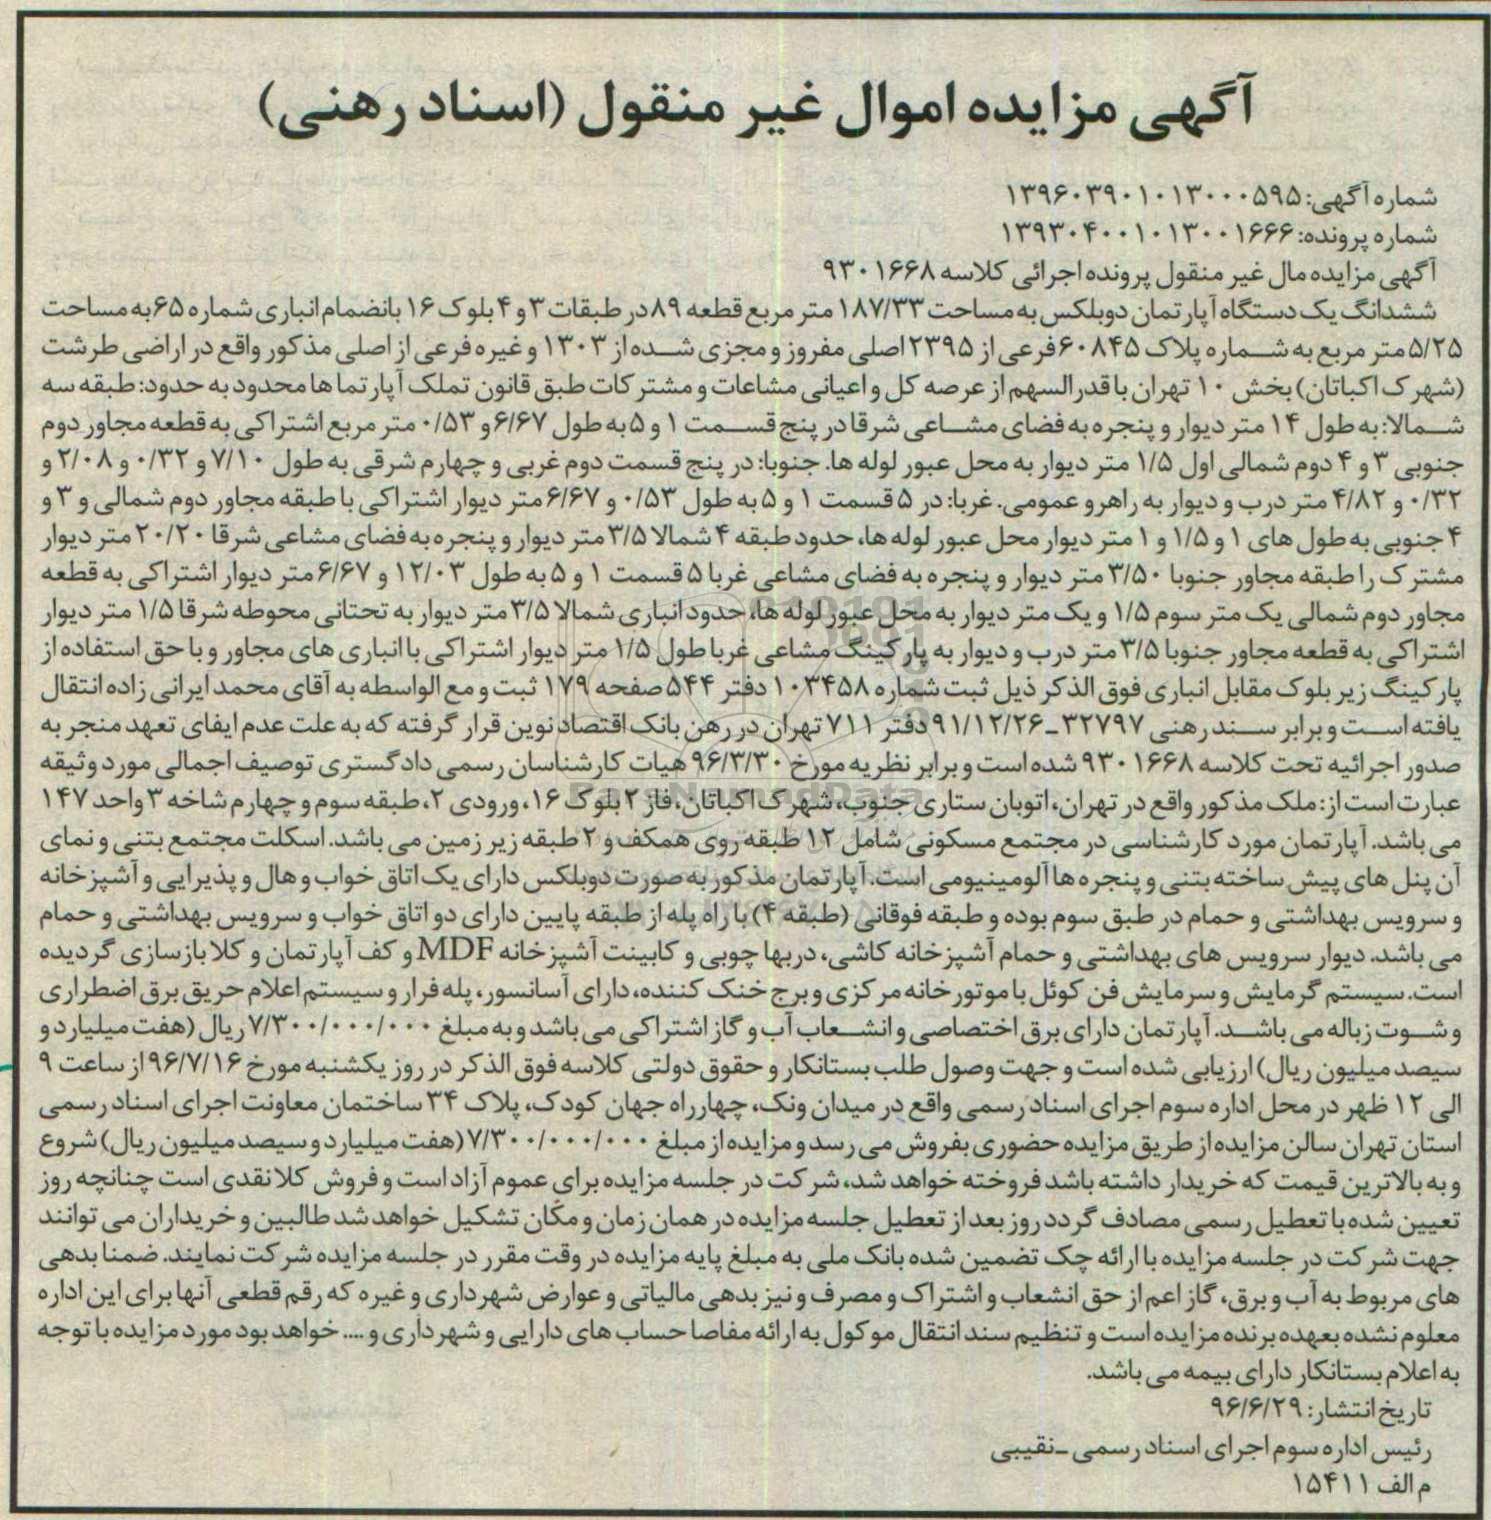 آگهی مزایده اموال غیر منقول (اسناد رهنی)
شماره آگهی: ۱۳۹۶۰۳۹۰۱۰۱۳۰۰۰۵۹۵
شماره پرونده: ۱۳۹۳۰۴۰۰۱۰۱۳۰۰۱۶۶۶
آگهی مزایده مال غیر منقول پرونده اجرائی کلاسه ۹۳۰۱۶۶۸
ششدانگ یک دستگاه آپارتمان دوبلکس به مساحت ۱۸۷/۳۳ متر مربع قطعه ۸۹ در طبقات ۳ و ۴ بلوک ۱۶ بانضمام انباری شماره ۶۵ به مساحت
۵/۲۵ متر مربع به شماره پلاک ۶۰۸۴۵ فرعی از ۲۳۹۵ اصلی مفروز و مجزی شده از ۱۳۰۳ و غیره فرعی از اصلی مذکور واقع در اراضی طرشت
(شهرک اکباتان) بخش ۱۰ تهران با قدرالسهم از عرصه کل و اعیانی مشاعات و مشترکات طبق قانون تملک آپارتما ها محدود به حدود: طبقه سه
شمالا: به طول ۱۴ متر دیوار و پنجره به فضای مشاعی شرقا در پنج قسمت ۱ و ۵ به طول ۶/۶۷ و ۰/۵۳ متر مربع اشتراکی به قطعه مجاور دوم
جنوبی ۳ و ۴ دوم شمالی اول ۱/۵ متر دیوار به محل عبور لوله ها. جنوبا: در پنج قسمت دوم غربی و چهارم شرقی به طول ۷/۱۰ و ۰/۳۲ و ۲/۰۸ و
۰/۳۲ و ۴/۸۲ متر درب و دیوار به راهرو عمومی. غربا: در ۵ قسمت ۱ و ۵ به طول ۰/۵۳ و ۶/۶۷ متر دیوار اشتراکی با طبقه مجاور دوم شمالی و ۳ و
۴ جنوبی به طول های ۱ و ۱/۵ و ۱ متر دیوار محل عبور لوله ها، حدود طبقه ۴ شمالا ۳/۵ متر دیوار و پنجره به فضای مشاعی شرقا ۲۰/۲۰ متر دیوار
مشترک را طبقه مجاور جنوبا ۳/۵۰ متر دیوار و پنجره به فضای مشاعی غربا ۵ قسمت ۱ و ۵ به طول ۱۲/۰۳ و ۶/۶۷ متر دیوار اشتراکی به قطعه
مجاور دوم شمالی یک متر سوم ۱/۵ و یک متر دیوار به محل عبور لوله ها، حدود انباری شمالا ۳/۵ متر دیوار به تحتانی محوطه شرقا ۱/۵ متر دیوار
اشتراکی به قطعه مجاور جنوبا ۳/۵ متر درب و دیوار به پارکینگ مشاعی غربا طول ۱/۵ متر دیوار اشتراکی با انباری های مجاور و با حق استفاده از
پارکینگ زیر بلوک مقابل انباری فوق الذکر ذیل ثبت شماره ۱۰۳۴۵۸ دفتر ۵۴۴ صفحه ۱۷۹ ثبت و مع الواسطه به آقای محمد ایرانی زاده انتقال
یافته است و برابر سند رهنی ۳۲۷۹۷ـ ۹۱/۱۲/۲۶ دفتر ۷۱۱ تهران در رهن بانک اقتصاد نوین قرار گرفته که به علت عدم ایفای تعهد منجر به
صدور اجرائیه تحت کلاسه ۹۳۰۱۶۶۸ شده است و برابر نظریه مورخ ۹۶/۳/۳۰ هیات کارشناسان رسمی دادگستری توصیف اجمالی مورد وثیقه
عبارت است از: ملک مذکور واقع در تهران، اتوبان ستاری جنوب، شهرک اکباتان، فاز ۲ بلوک ۱۶، ورودی ۲، طبقه سوم و چهارم شاخه ۳ واحد ۱۴۷
می باشد. آپارتمان مورد کارشناسی در مجتمع مسکونی شامل ۱۲ طبقه روی همکف و ۲ طبقه زیر زمین می باشد. اسکلت مجتمع بتنی و نمای
آن پنل های پیش ساخته بتنی و پنجره ها آلومینیومی است. آپارتمان مذکور به صورت دوبلکس دارای یک اتاق خواب و هال و پذیرایی و آشپزخانه
و سرویس بهداشتی و حمام در طبق سوم بوده و طبقه فوقانی (طبقه ۴) با راه پله از طبقه پایین دارای دو اتاق خواب و سرویس بهداشتی و حمام
می باشد. دیوار سرویس های بهداشتی و حمام آشپزخانه کاشی، دربها چوبی و کابینت آشپزخانه MDF و کف آپارتمان و کلا بازسازی گردیده
است. سیستم گرمایش و سرمایش فن کوئل با موتورخانه مرکزی و برج خنک کننده، دارای آسانسور، پله فرار و سیستم اعلام حریق برق اضطراری
و شوت زباله می باشد. آپارتمان دارای برق اختصاصی و انشعاب آب و گاز اشتراکی می باشد و به مبلغ ۷/۳۰۰/۰۰۰/۰۰۰ ریال (هفت میلیارد و
سیصد میلیون ریال) ارزیابی شده است و جهت وصول طلب بستانکار و حقوق دولتی کلاسه فوق الذکر در روز یکشنبه مورخ ۹۶/۷/۱۶ از ساعت ۹
الی ۱۲ ظهر در محل اداره سوم اجرای اسناد رسمی واقع در میدان ونک، چهارراه جهان کودک، پلاک ۳۴ ساختمان معاونت اجرای اسناد رسمی
استان تهران سالن مزایده از طریق مزایده حضوری بفروش می رسد و مزایده از مبلغ ۷/۳۰۰/۰۰۰/۰۰۰ (هفت میلیارد و سیصد میلیون ریال) شروع
و به بالاترین قیمت که خریدار داشته باشد فروخته خواهد شد، شرکت در جلسه مزایده برای عموم آزاد است و فروش کلا نقدی است چنانچه روز
تعیین شده با تعطیل رسمی مصادف گردد روز بعد از تعطیل جلسه مزایده در همان زمان و مکان تشکیل خواهد شد طالبین و خریداران می توانند
جهت شرکت در جلسه مزایده با ارائه چک تضمین شده بانک ملی به مبلغ پایه مزایده در وقت مقرر در جلسه مزایده شرکت نمایند. ضمنا بدهی
های مربوط به آب و برق، گاز اعم از حق انشعاب و اشتراک و مصرف و نیز بدهی مالیاتی و عوارض شهرداری و غیره که رقم قطعی آنها برای این اداره
معلوم نشده بعهده برنده مزایده است و تنظیم سند انتقال موکول به ارائه مفاصا حساب های دارایی و شهرداری و .... خواهد بود مورد مزایده با توجه
به اعلام بستانکار دارای بیمه می باشد.
تاریخ انتشار: ۹۶/۶/۲۹
رئیس اداره سوم اجرای اسناد رسمی ـ نقیبی
م الف ۱۵۴۱۱